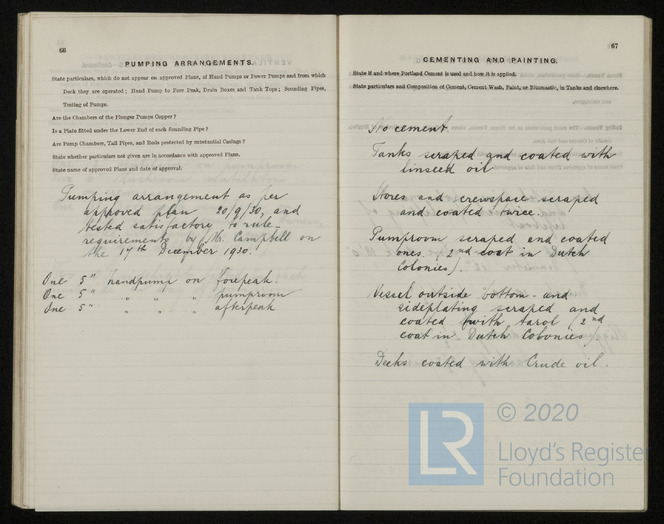 66
PUMPING ARRANGEMENTS.
State particulars, which do not appear on approved Plans, of Hand Pumps or Power Pumps and from which
Deck they are operated; Hand Pump to Fore Peak, Drain Boxes and Tank Tops; Sounding Pipes,
Testing of Pumps.
Are the Chambers of the Plunger Pumps Copper?
Is a Plate fitted under the Lower End of each Sounding Pipe?
Are Pump Chambers, Tail Pipes, and Rods protected by substantial Casings?
State whether particulars not given are in accordance with approved Plans.
State name of approved Plans and date of approval.
Pumping arrangement as per
approved plan 20/9/30, and
tested satisfactore to rule-
requirements by Mr. Campbell on
the 17th December 1930.
One 5" handpump on forepeak.
One 5" " " " pumproom
One 5" " " " afterpeak
67
CEMENTING AND PAINTING.
State if and where Portland Cement is used and how it is applied.
State particulars and Composition of Cement, Cement Wash, Paint, or Bitumastic, in Tanks and elsewhere.
No cement
Tanks scraped and coated with
linseed oil
Stores and crewspace scraped
and coated twice
Pumproom scraped and coated
ones (2nd coat in Dutch
Colonies).
Vessel outside bottom and
sideplating scraped and
coated with tarol (2nd
coat in Dutch Colonies)
Decks coated with Crude oil.
LR
© 2020
Lloyd's Register
Foundation